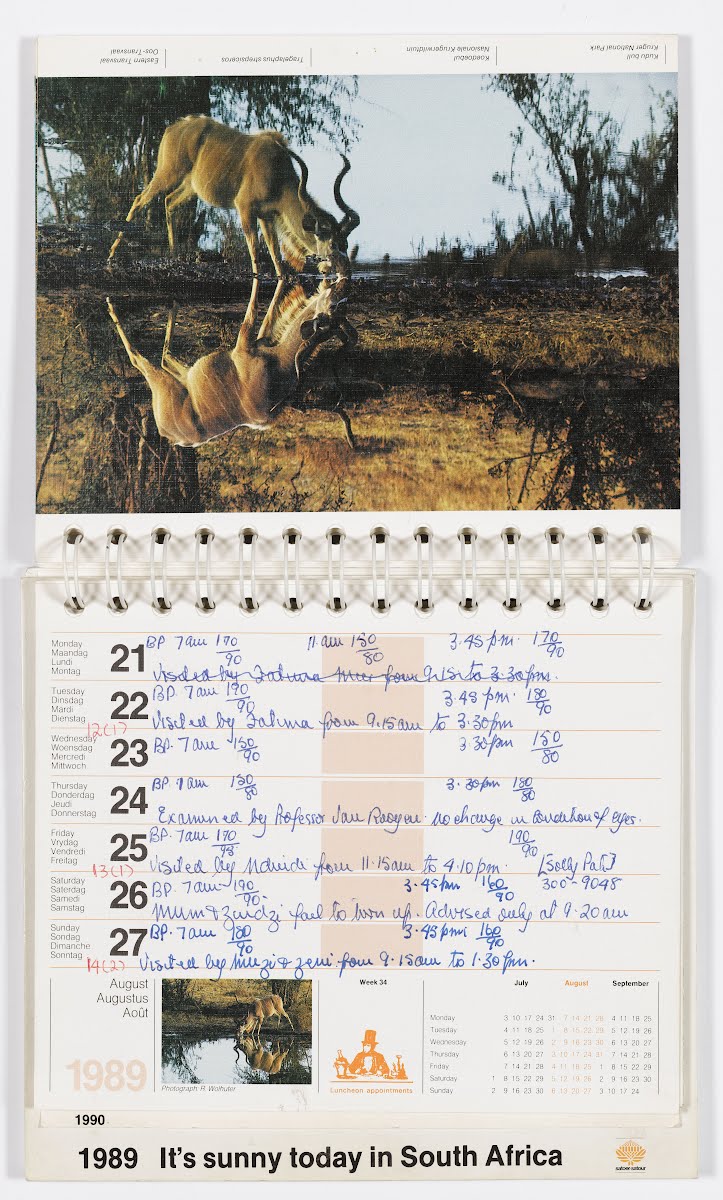 Kudu bull
Kruger National Park
Koedoebul
Nasionale Krugerwildtuin
Tragelaphus strepsiceros
Eastern Transvaal
Oos-Transvaal
Monday
Maandag
Lundi
Montag
21
BP 7am 170/90 11am 150/80 3.45pm. 170/90
Visited by Fatima Meer from 9.15 to 3.30pm.
Tuesday
Dinsdag
Mardi
Dienstag
22
BP. 7am 190/90 3.45 pm. 180/90
Visited by Fatima from 9.15am to 3.30pm
12(1)
Wednesday
Woensdag
Mercredi
Mittwoch
23
BP. 7am 150/90 3.30pm 150/80
Thursday
Donderdag
Jeudi
Donnerstag
24
BP. 7am 130/80 3.30pm 180/80
Examined by Professor Van Rooyen no change in condition of eyes.
Friday
Vrydag
Vendredi
Freitag
25
BP. 7am 170/95 190/90
Visited by Ndindi from 11.15am to 4.10pm. [Solly Pat]
13(1)
Saturday
Saterdag
Samedi
Samstag
26
BP. 7am 190/90. 3.45pm 160/90 300-9048
Mum & Zindzi fail to turn up. Advised only at 9.20am
Sunday
Sondag
Dimanche
Sonntag
27
BP. 7am 180/90 3.45pm 160/90
14(2) Visited by Muzi & Zeni from 9.15am to 1.30pm.
August
Augustus
Août
1989
Photograph: R. Wolhuter
Week 34
Luncheon appointments
July August September
Monday 3 10 17 24 31 7 14 21 28 4 11 18 25
Tuesday 4 11 18 25 1 8 15 22 29 5 12 19 26
Wednesday 5 12 19 26 2 9 16 23 30 6 13 20 27
Thursday 6 13 20 27 3 10 17 24 31 7 14 21 28
Friday 7 14 21 28 4 11 18 25 1 8 15 22 29
Saturday 1 8 15 22 29 5 12 19 26 2 9 16 23 30
Sunday 2 9 16 23 30 6 13 20 27 3 10 17 24
1990
1989 It's sunny today in South Africa
satour·satoer